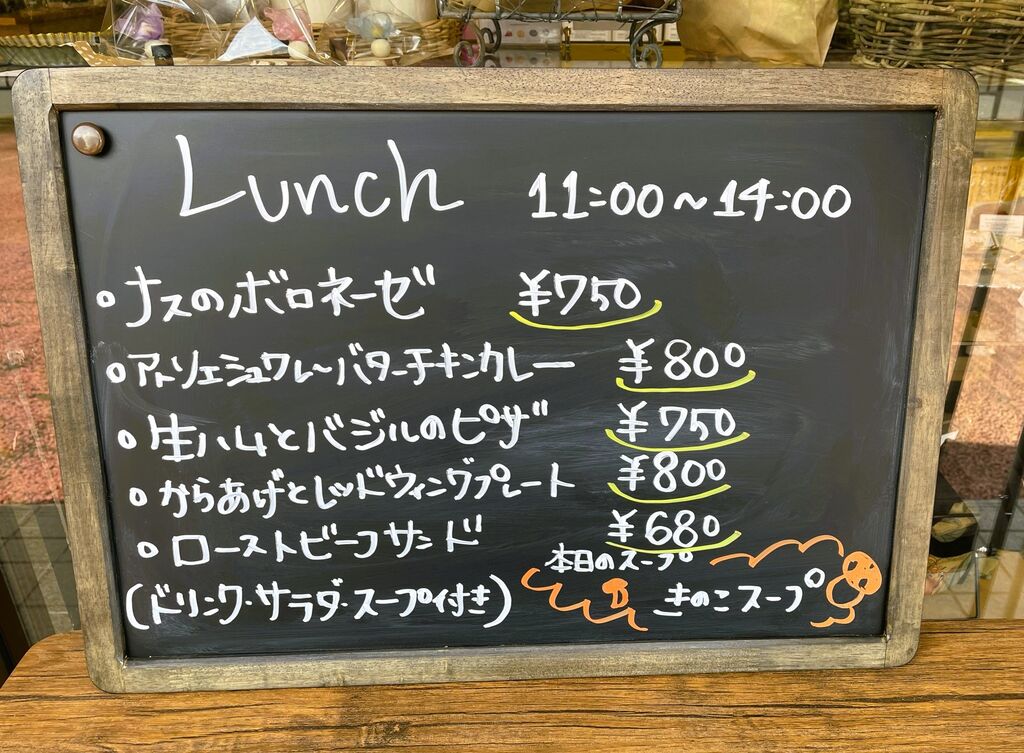 Lunch 11:00~14:00
・ナスのボロネーゼ ¥750
・アトリエシュクレ～バターチキンカレー ¥800
・生ハムとバジルのピザ ¥750
・からあげとレッドウィングプレート ¥800
・ローストビーフサンド ¥680
(ドリンク・サラダ・スープ付き)
本日のスープ
きのこスープ